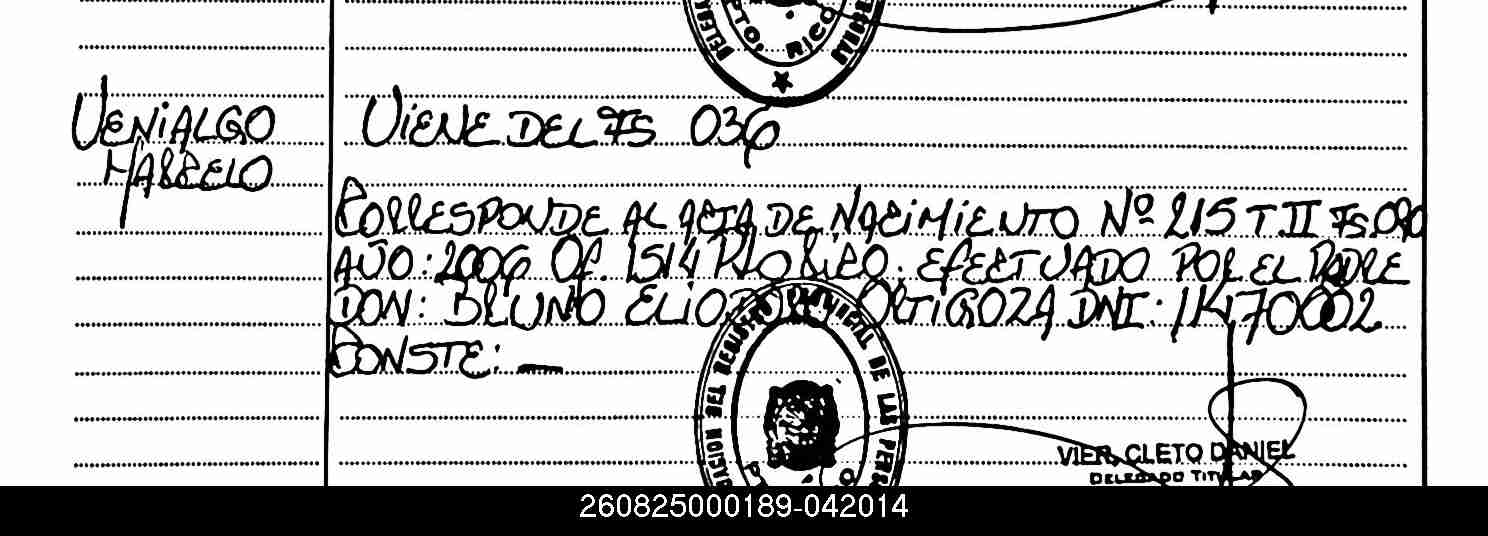 PTO. RICO
VENIALGO
MARCELO
VIENE DEL FS 036
CORRESPONDE AL ACTA DE NACIMIENTO Nº 215 T.II FS.090
AÑO: 2006 Of. 1514 PTO RICO. EFECTUADO POR EL PADRE
DON: BRUNO ELIODORO ORTIGOZA DNI: 14170002
CONSTE: —
DEL REGISTRO PROVINCIAL DE LAS PERS
VIER, CLETO DANIEL
DELEGADO TITULAR
260825000189-042014